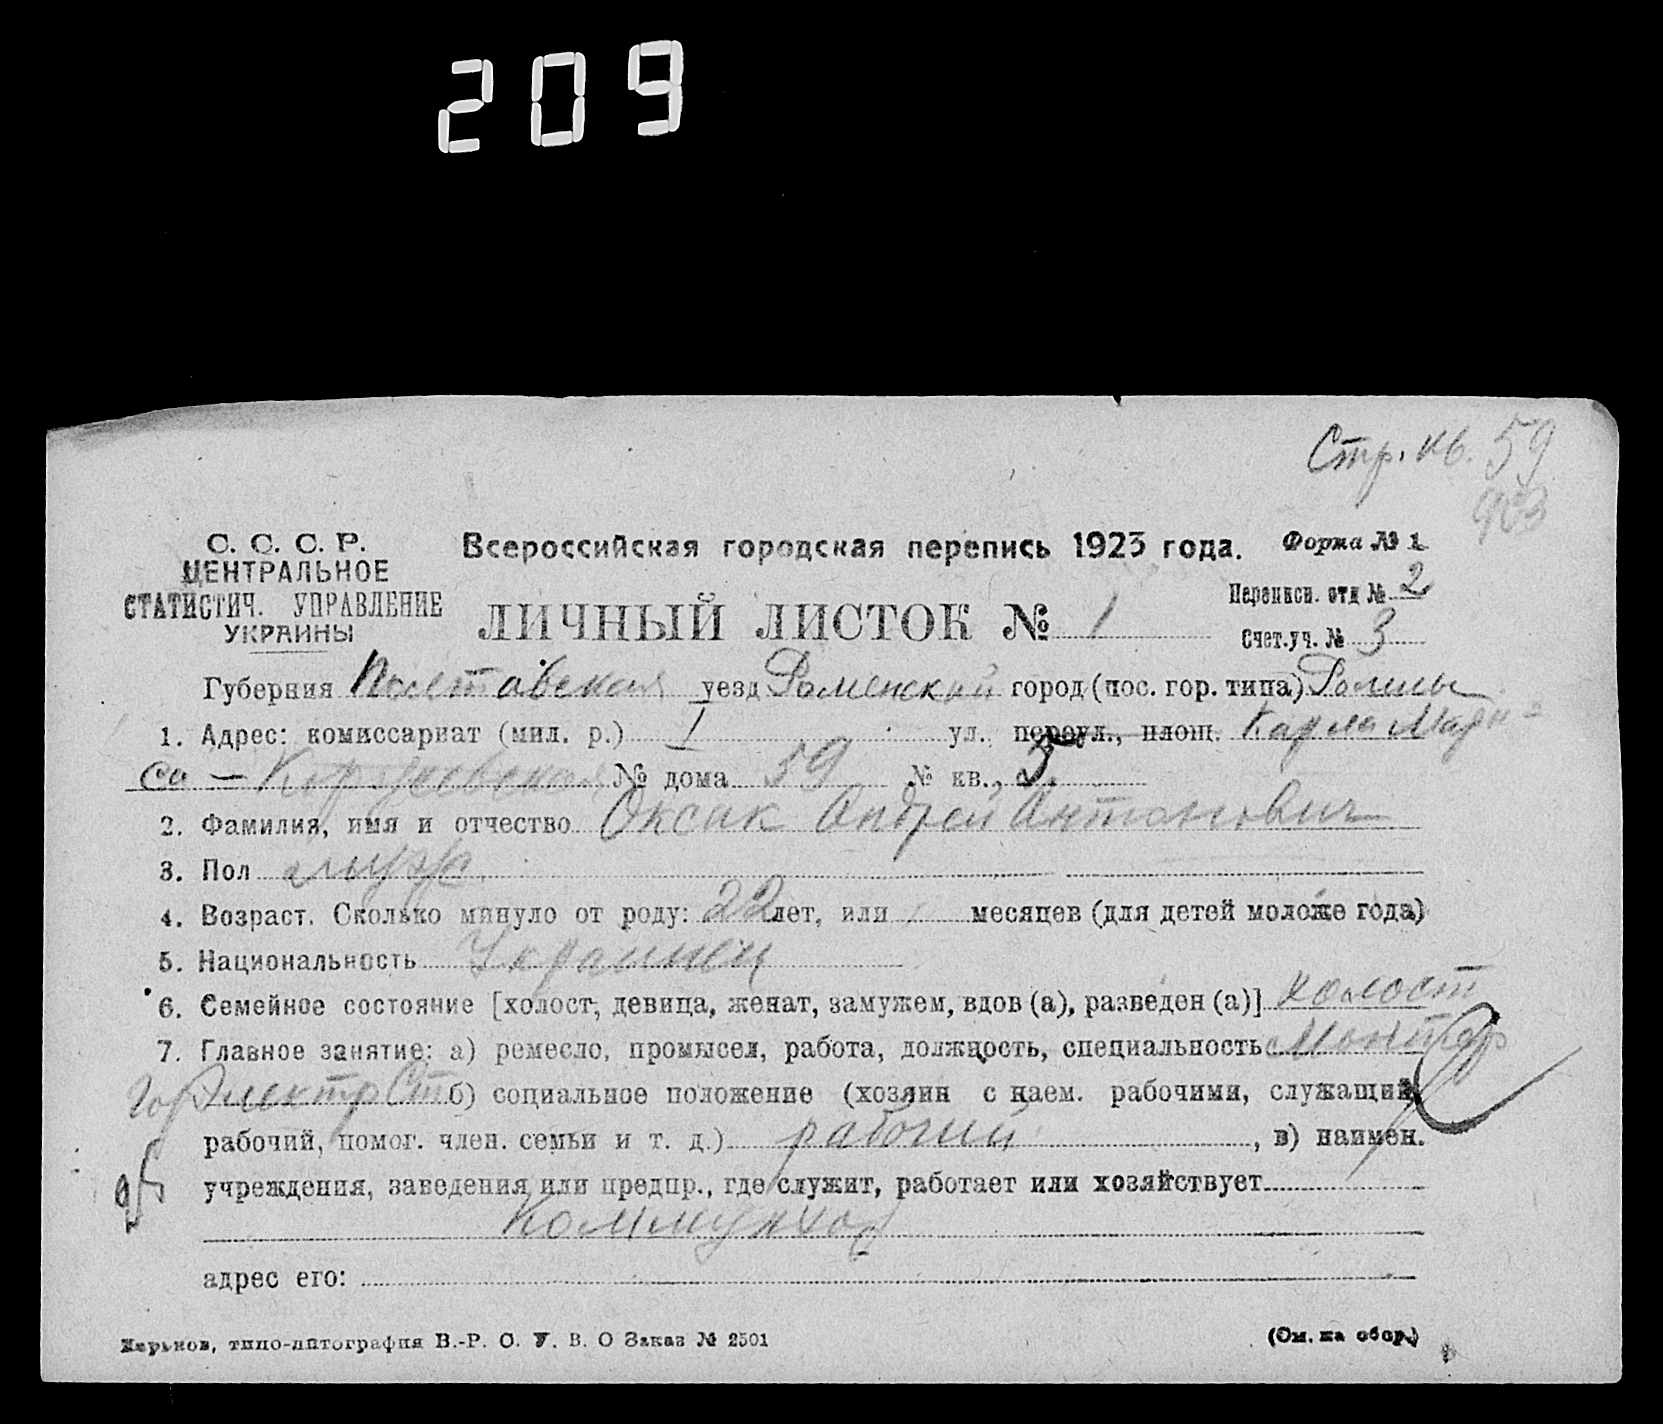 209
Стр. кв. 59
903
С. С. С. Р.
ЦЕНТРАЛЬНОЕ
СТАТИСТИЧ. УПРАВЛЕНИЕ
УКРАИНЫ
Всероссийская городская перепись 1923 года.
Форма № 1
ЛИЧНЫЙ ЛИСТОК № 1
Переписн. отд № 2
Счет.уч. № 3
Губерния Полтавская уезд Роменский город (пос. гор. типа) Ромны
1. Адрес: комиссариат (мил. р.) I ул., переул., площ. Карла Марк
са — № дома 59 № кв., 3.
2. Фамилия, имя и отчество Оксак Андрей Антонович
3. Пол муж
4. Возраст. Сколько минуло от роду: 22 лет, или месяцев (для детей моложе года)
5. Национальность Украинец
6. Семейное состояние [холост, девица, женат, замужем, вдов (а), разведен (а)] холост
7. Главное занятие: а) ремесло, промысел, работа, должность, специальность Монтер
ГорЭлектрСт б) социальное положение (хозяин с наем. рабочими, служащий,
рабочий, помог. член. семьи и т. д.) рабочий , в) наимен.
учреждения, заведения или предпр., где служит, работает или хозяйствует
Коммунхоз
адрес его:
Харьков, типо-литография В.-Р. С. У. В. О Заказ № 2501
(См. на обор.)